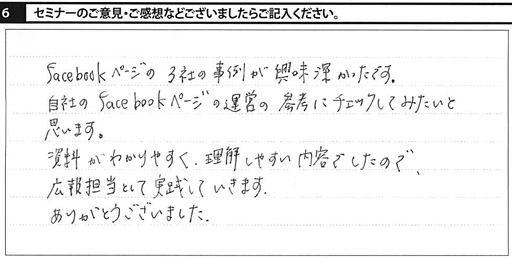 6 セミナーのご意見・ご感想などございましたらご記入ください。
facebookページの3社の事例が興味深かったです。
自社のfacebookページの運営の参考にチェックしてみたいと
思います。
資料がわかりやすく、理解しやすい内容でしたので、
広報担当として実践していきます。
ありがとうございました。